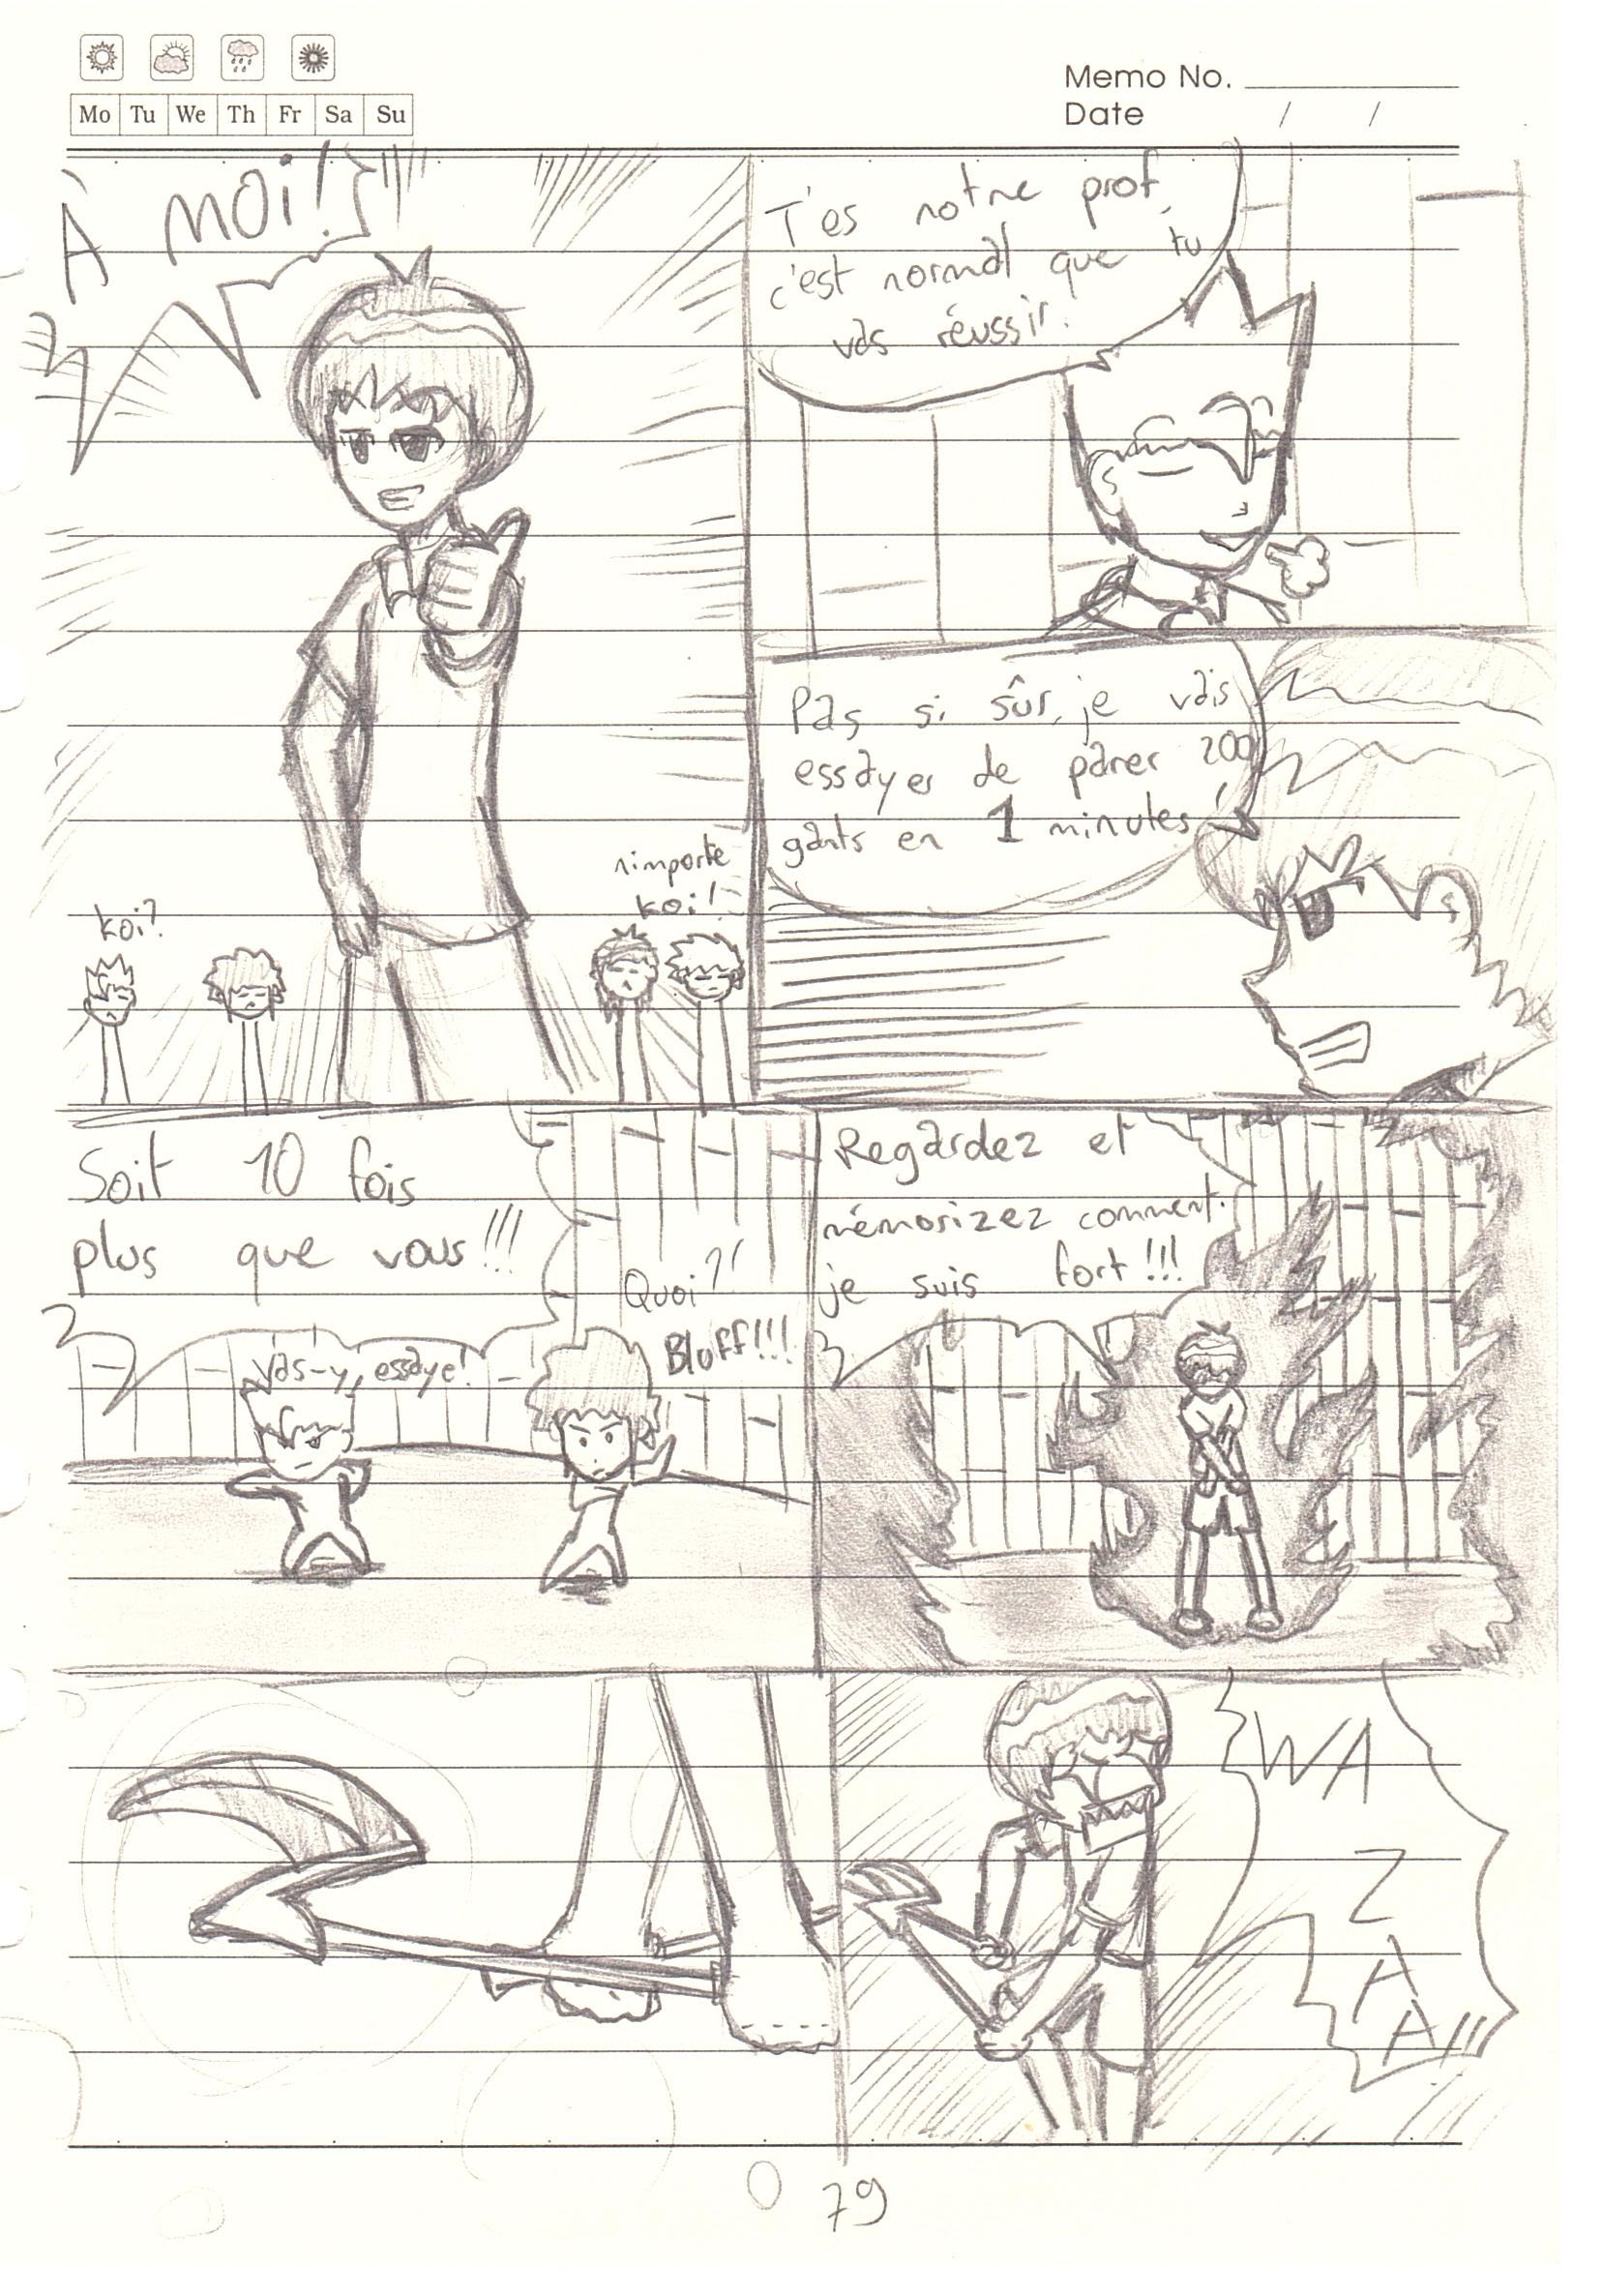 Memo No.
Date / /
Mo Tu We Th Fr Sa Su
À MOi!
koi?
n'importe
koi!
T'es notre prof,
c'est normal que tu
vas réussir.
Pas si sûr, je vais
essayer de parer 200
gants en 1 minutes!
Soit 10 fois
plus que vous!!!
Vas-y, essaye!
Quoi?!
Bluff!!!
Regardez et
mémorizez comment
je suis fort!!!
WA
Z
A
A!!
79